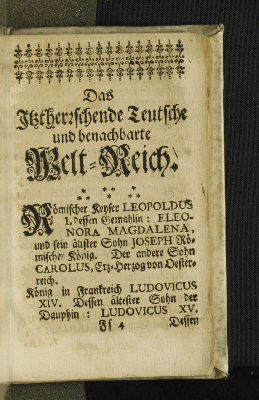 Das
Itztherrschende Teutsche
und benachbarte
Welt-Reich.
Römischer Keyser LEOPOLDUS
I. dessen Gemahlin: ELEO-
NORA MAGDALENA,
und sein ältster Sohn JOSEPH Rö-
mischer König. Der andere Sohn
CAROLUS, Ertz-Hertzog von Oester-
reich.
König in Franckreich LUDOVICUS
XIV. Dessen ältester Sohn der
Dauphin: LUDOVICUS XV.
Ff 4
Dessen